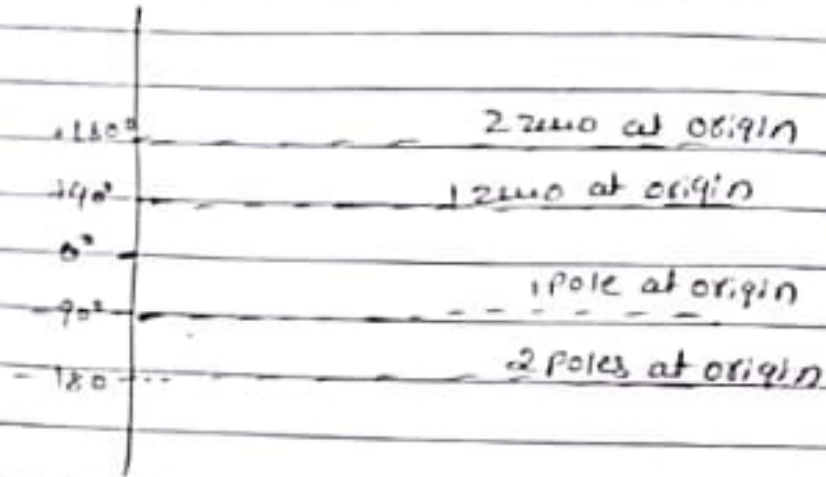 +180° 2 zero at origin
+90° 1 zero at origin
0°
-90° 1 pole at origin
-180 2 poles at origin